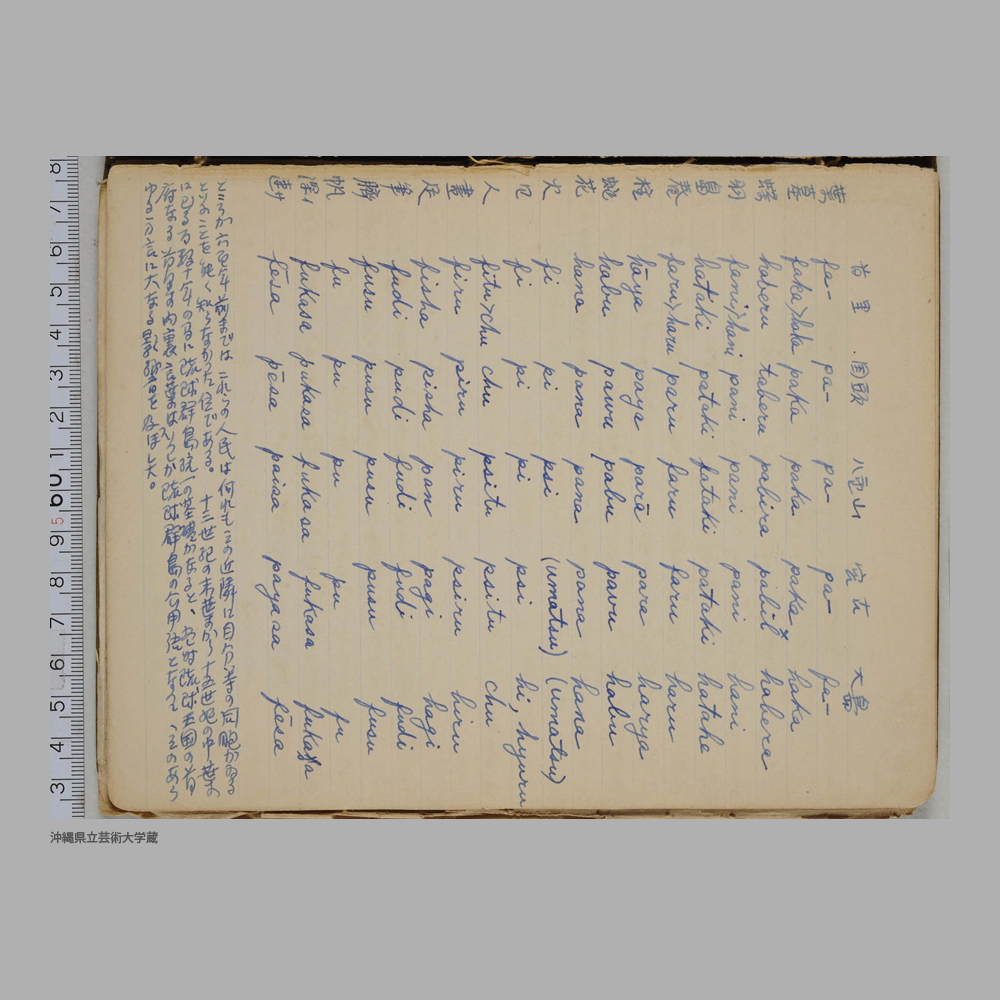 首里 国頭 八重山 宮古 大島
葉 fa- pa- pa- pa- fa-
墓 faka>haka paka paka paka haka
蝶 haberu taberu pabira pibil habera
羽 fani>hani pani pani pani hani
畠 hataki pataki fataki pataki hatake
春 faru>haru paru faru faru haru
柱 hāya paya parā para harya
蛇 habu pawu pabu pavu habu
花 hana pana pana pana hana
火 fi pi psi (umatsu) (umatsu)
日 fi pi pi psi hi, hyuru
人 fitu>chu chu psitu psitu chu
晝 firu piru piru psiru hiru
足 fisha pisha pan pagi hagi
筆 fudi pudi fudi fudi fudi
臍 fusu pusu pusu pusu fusu
帆 fu pu pu pu fu
深い fukasa pukasa fukasa fukasa fukasa
速サ fēsa pēsa paisa payasa fēsa
ところが六百年前までは これらの人民は何れも この近隣に自分等の同胞がゐる
といふことを能く知らなかった位である。十三世紀の末葉から十五世紀の中葉
に至る百数十年の間に琉球群島統一の基礎がなると、
府なる首里の内裏言葉はいつか琉球群島の公用語となって、そのあら
ゆる方言に大なる影響を及ぼした。
8 7 6 5 4 3 2 1 60 9 8 7 6 5 4 3
5
沖縄県立芸術大学蔵